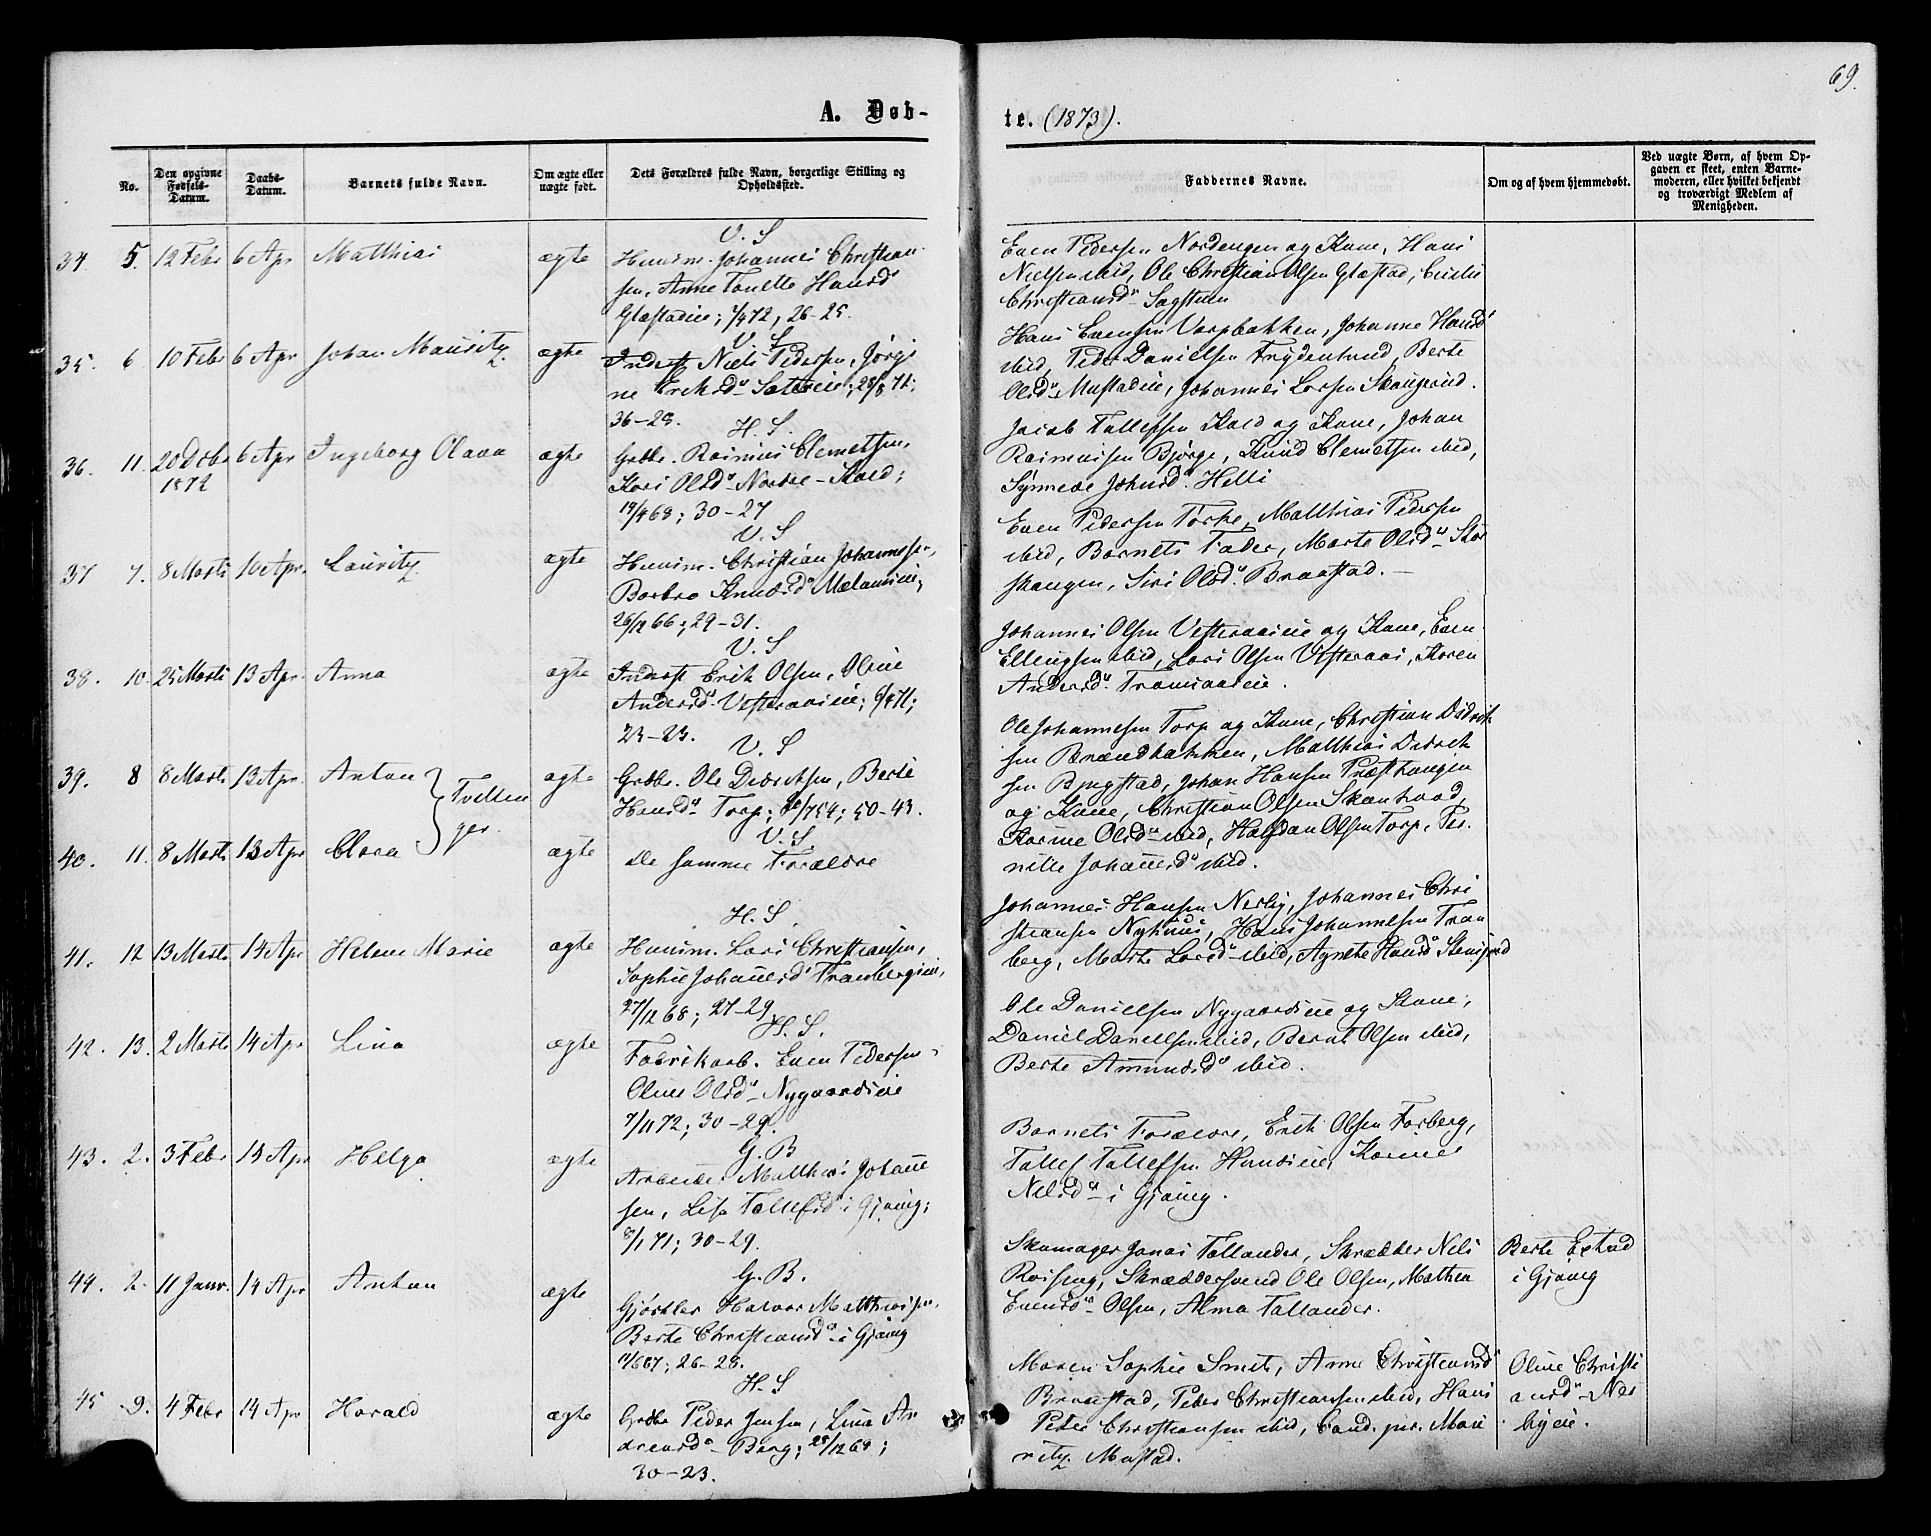 69.
A. Døb-
te. (1873).
No.
Den opgivne Fødsels-Datum.
Daabs-Datum.
Barnets fulde Navn.
Om ægte eller uægte født.
Dets Forældres fulde Navn, borgerlige Stilling og Opholdssted.
Faddernes Navne.
Om og af hvem hjemmedøbt.
Ved uægte Børn, af hvem Op-
gaven er skeet, enten Barne-
moderen, eller hvilket bekjendt
og troværdigt Medlem af
Menigheden.
V. S
34. 5. 12 Febr 6 Apr Matthias ægte Huusm. Johannes Christian
sen, Anne Tonette Hansdr
Glæstadeie; 26-25.
Even Pedersen Nordengen og Kone, Hans
Nielsen ibid, Ole Christian Olsen Glæstad,
Christiansdr Sogstuen
V. S
35. 6 10 Febr 6 Apr Johan Mauritz ægte Inderst Niels Pedersen, Jørgi
ne Eriksdr
36-29.
Hans Evensen Torpbakken, Johanne Hansdr
ibid, Peder Danielsen Frydenlund, Berte
Olsdr Mustadeie, Johannes Larsen Skougerud.
H. S.
36. 11. 20 Dcbr 1872 6 Apr Ingeborg Olava ægte Grdbr. Rasmus Clemetsen,
Kari Olsdr Nordre-Kald;
19/4 68; 30-27
Jacob Tollefsen Kald og Kone, Johan
Rasmussen Bjørge, Knud Clemetsen ibid,
Synneve Johnsdr. Helli
V. S
37 7. 8 Marts 10 Apr. Lauritz ægte Huusm. Christian Johannessen,
Barbro Knudsdr Mælumseie;
26/12 66; 29-31.
Even Pedersen Torke, Matthias Pedersen
ibid, Barnets Fader, Marte Olsdr Stor
skougen, Siri Olsdr. Braastad.
V. S
38. 10. 25 Marts 13 Apr. Anna ægte Inderst Erik Olsen, Oline
Andersdr. Vesteraaseie; 71;
23-23.
Johannes Olsen Vesteraaseie og Kone, Even
Ellingsen ibid, Lars Olsen Vesteraas, Karen
Andersdr. Tranaaseie.
V. S
39. 8 8 Marts 13 Apr Anton } Tvillin
ger. ægte Grdbr. Ole Didriksen, Berte
Hansdr Torp; 54; 50-43.
Ole Johannesen Torp og Kone, Christian Didrik
sen Brændbakken, Matthias Didrik
sen Bragstad, Johan Hansen Præsthaugen
og Kone, Christian Olsen Skonhoad,
Karine Olsdr ibid, Halfdan Olsen Torp, Per
nille Johannesdr ibid.
V. S.
40. 11. 8 Marts 13 Apr Clara ægte de samme Forældre
H. S.
41. 12 13 Marts 14 Apr Helene Marie ægte Huusm. Lars Christiansen,
Sophie Johannesdr Tranbergeie,
27/12 68; 27-29
Johannes Hansen Nerby, Johannes Chri
stiansen Nyhuus, Hans Johannesen Tran
berg, Marte Larsdr ibid, Agnethe Hansdr
H. S.
42. 13. 2 Marts 14 Apr Lina ægte Fabrikarb. Even Pedersen,
Oline Olsdr Nygaardseie
7/11 72; 30-29.
Ole Danielsen Nygaardseie og Kone,
Daniel Danielsen ibid, Bernt Olsen ibid,
Berte Amundsdr ibid.
G. B
43. 2. 3 Febr 14 Apr Helga ægte Arbeider Matthias Johanne
sen, Lisa Tollefsdr i Gjøvig;
8/1 71; 30-29.
Barnets Forældre, Erik Olsen Forberg,
Tollef Tollefsen Hunseie, Karine
Nilsdr i Gjøvig.
G. B.
44. 2. 11 Janr. 14 Apr Anton ægte Gjørtler Halvor Matthiassen,
Berte Christiansdr i Gjøvig
67; 26-28.
Skomager Jonas Tollander, Skrædder Nils
Roissng, Skræddersvend Ole Olsen, Mathea
Evensdr Olsen, Alma Tollander.
Berte Exstad
i Gjøvig
H. S
45 9. 4 Febr 14 Apr Harald ægte Grdbr Peder Jensen, Lina An
dreasdr Berg; 28/12 69;
30-23.
Maren Sophie Smith, Anne Christiansdr
Braastad, Peter Christiansen ibid, Hans
Peter Christiansen ibid, Cand. jur. Mau
ritz Mustad.
Oline Christi
ansdr Ner
byeie.